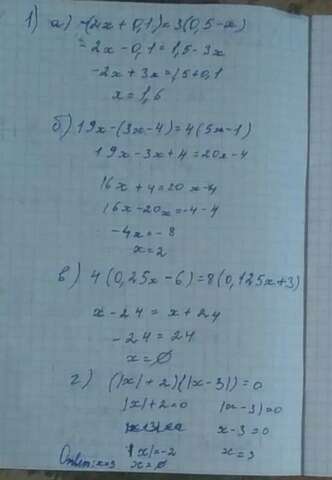 1) а) -(2x + 0,1) = 3(0,5-x)
-2x - 0,1 = 1,5 - 3x
-2x + 3x = 1,5 + 0,1
x = 1,6
б) 19x - (3x - 4) = 4(5x - 1)
19x - 3x + 4 = 20x - 4
16x + 4 = 20x - 4
16x - 20x = -4 - 4
-4x = -8
x = 2
в) 4(0,25x - 6) = 8(0,125x + 3)
x - 24 = x + 24
-24 = 24
x = ∅
г) (|x| + 2)(|x - 3|) = 0
|x| + 2 = 0 |x - 3| = 0
x - 3 = 0
|x| = -2 x = 3
Ответ: x = 3 x = ∅